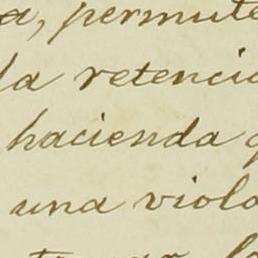 a, permute
la retenci
hacienda
una viol